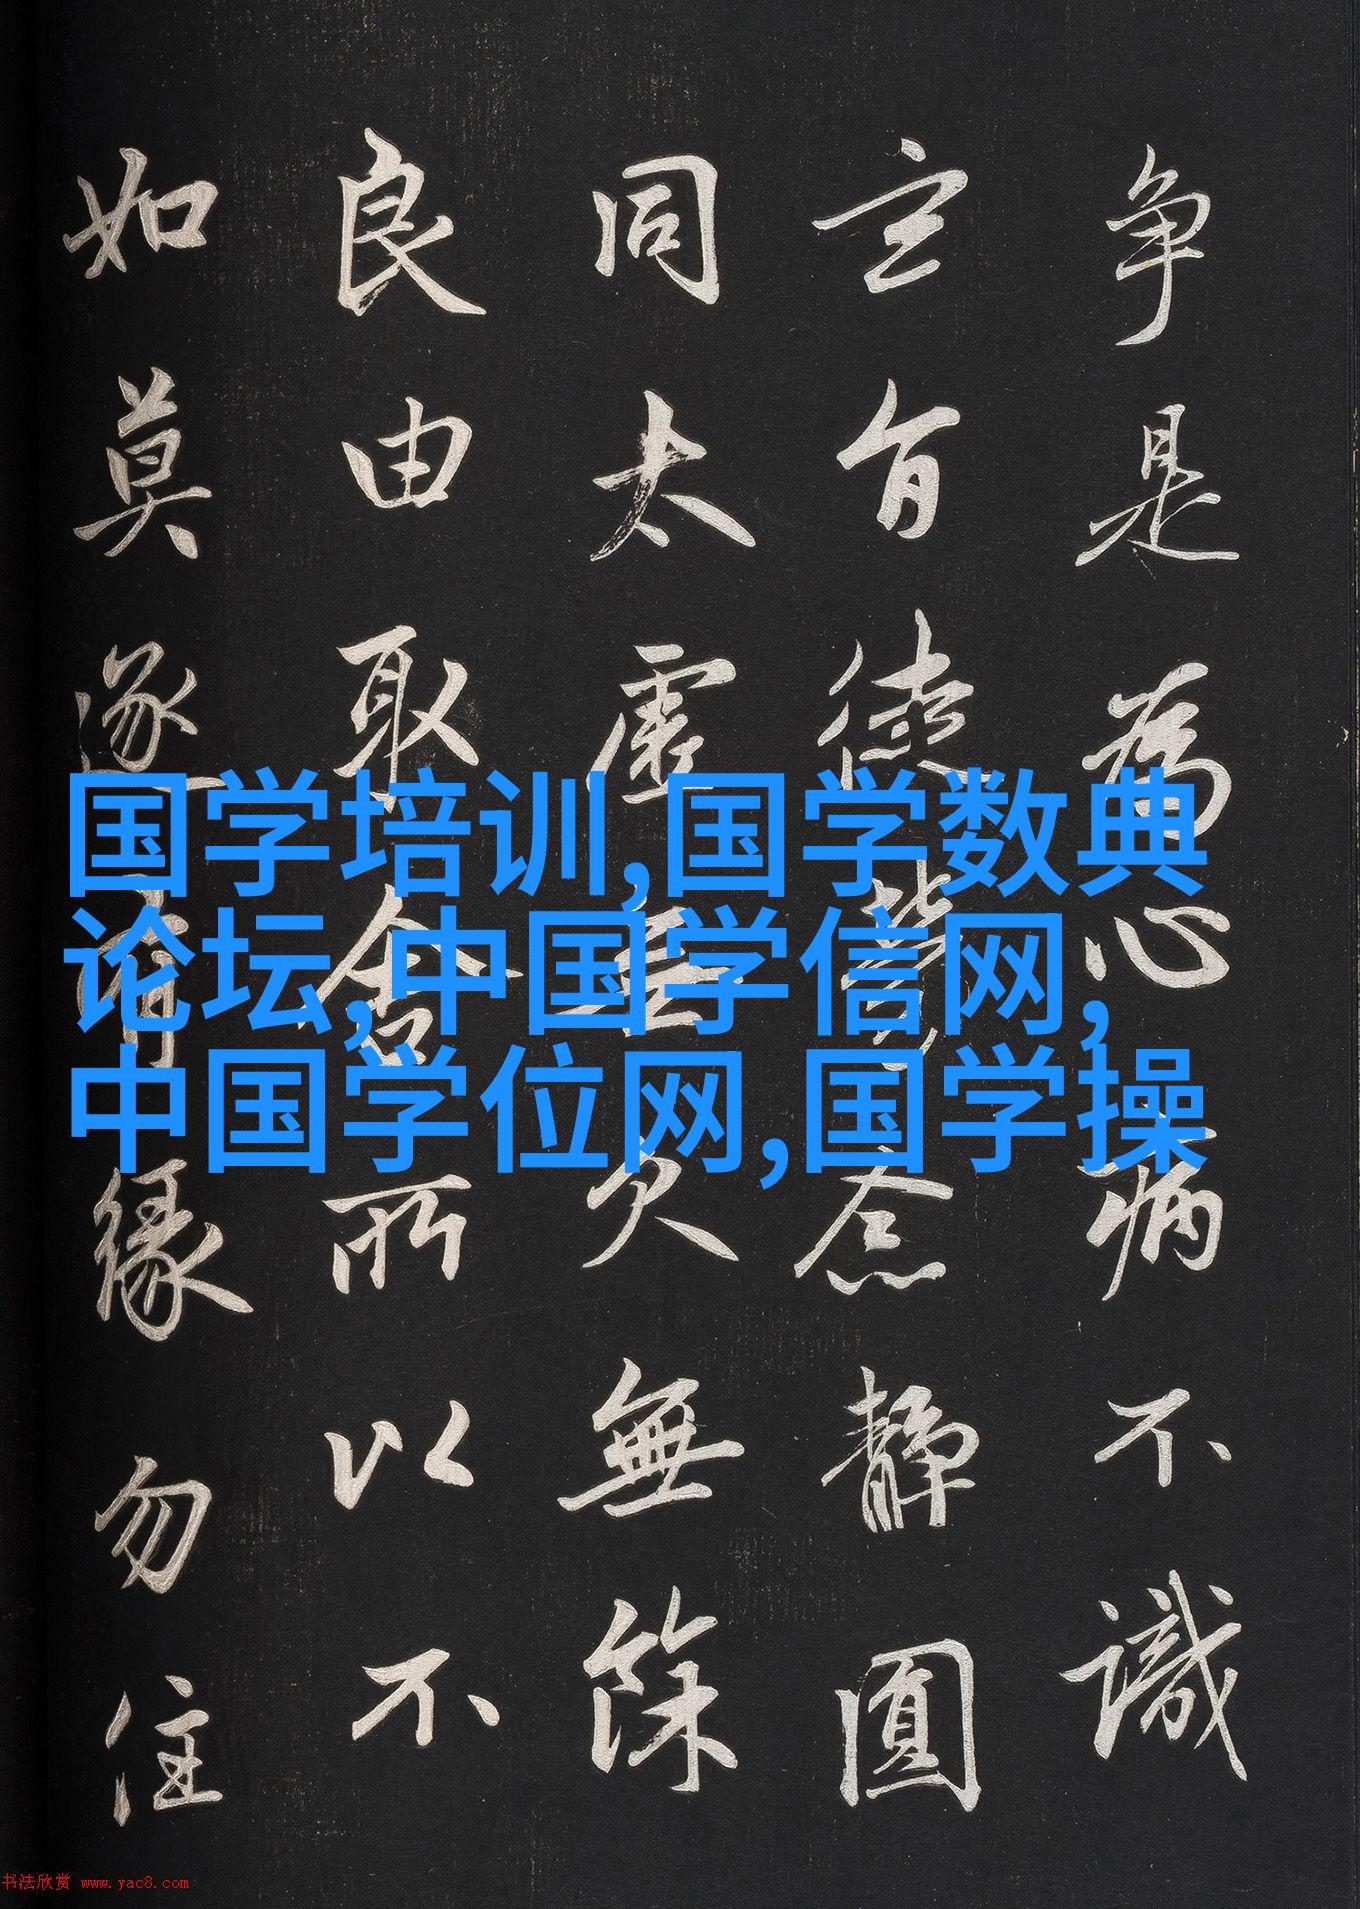 争是為心病不識
玄旨徒勞念靜圓
同太虛無欠無餘
良由取舍所以不
如莫逐有緣勿住
国学培训,国学数典
论坛,中国学信网,
中国学位网,国学操
书法欣赏 www.yac8.com